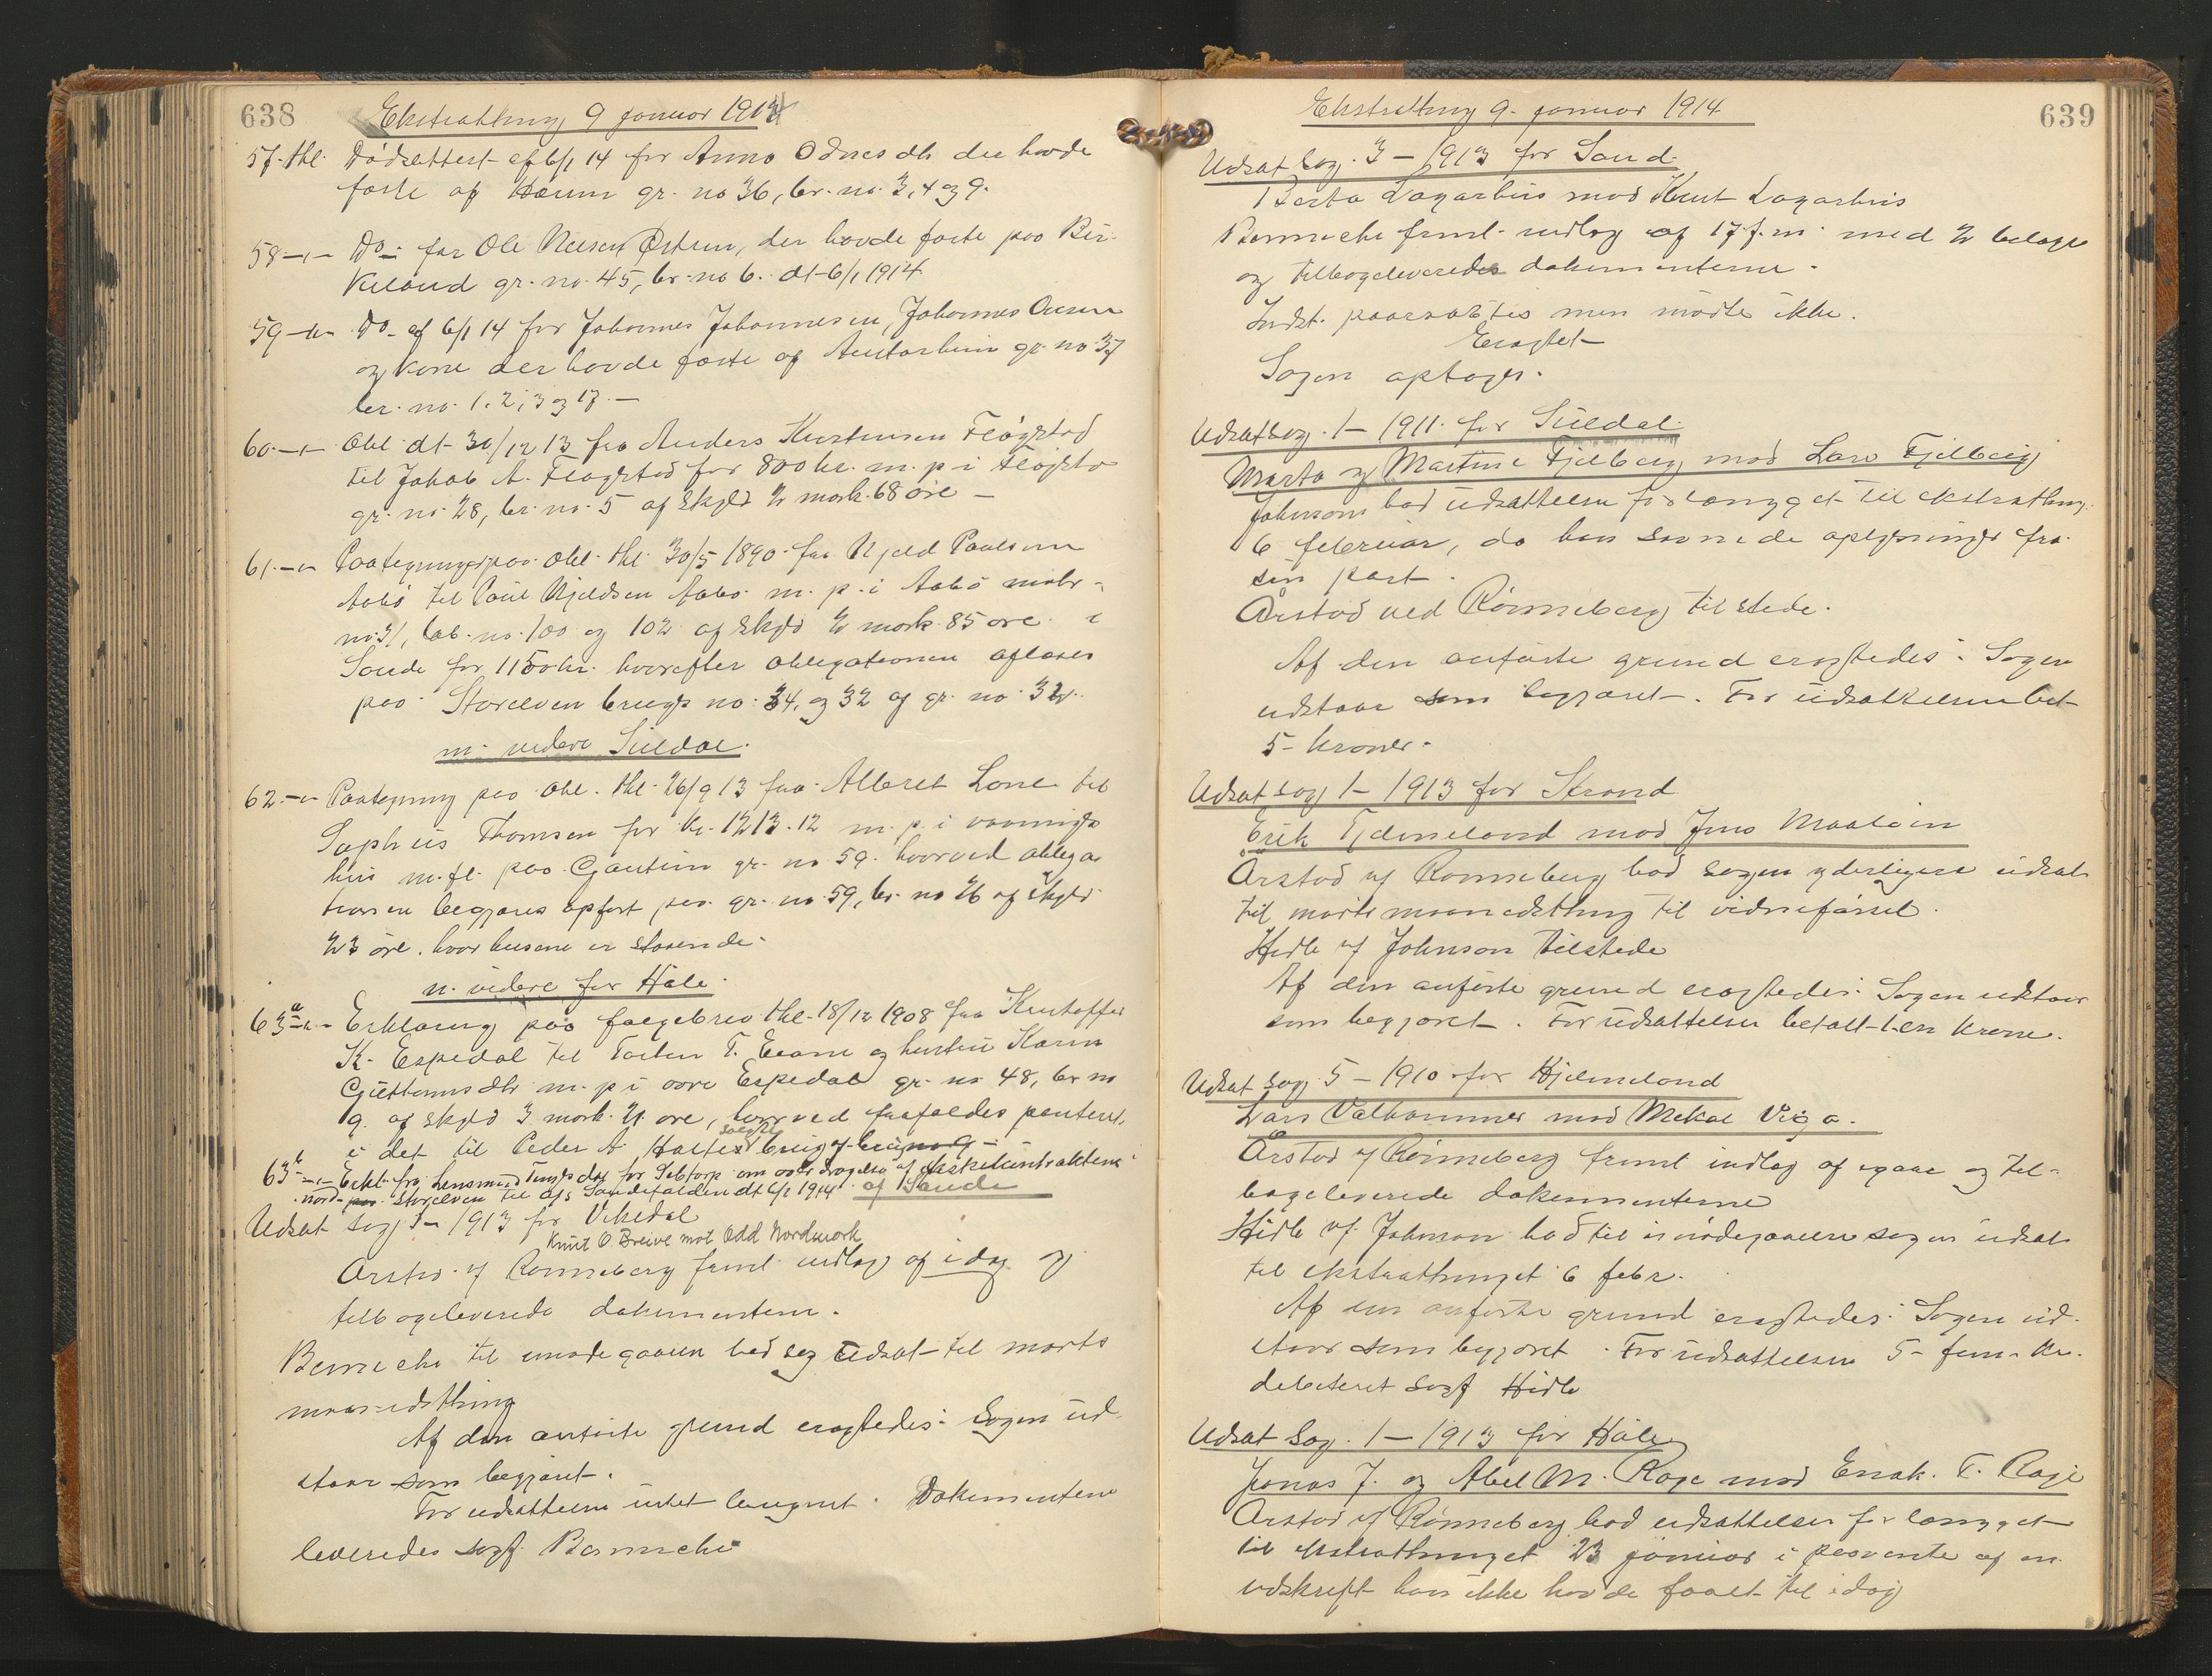 638
Ekstratting 9 januar 1914
57. thl. Dødsattest af 6/1 14 for Anna Odnes dtr der havde
fæste af Haum gr. no 36, br. no. 3, 4 og 9.
58 -"- Do - for Ole Nielsen Østrem, der havde fæste paa Bir-
keland gr. no. 45, br. no 6. dt 6/1 1914
59 -"- Do - af 6/1 14 for Johannes Johannesen, Johannes
og kone der havde fæste af gr. no 37
br. no. 1, 2, 3 og 17. —
60. -"- Obl. dt 30/12 13 fra Anders Kristensen Fløgstad
til Jakob A. Fløgstad for 800 kr. m. p. i Fløgsta
gr. no. 28, br. no. 5 af skyld 2 mark 68 øre —
61. -"- Paategning paa obl. thl. 30/5 1890 fra Kjeld Paulsen
Aabø til Paul Kjeldsen Aabø m. p. i Aabø matr.
no. 31, løb. no. 100 og 102 af skyld 2 mark 85 øre i
Sande for 1150 kr. hvorefter obligationen afløses
paa Storelven brugs no. 34, og 32 af gr. no. 32.
m. videre Suldal.
62. -"- Paategning paa obl. thl. 26/9 13 fra Albret Lone til
Sophus Thomsen for kr. 1213.12 m. p. i vaanings
hus m. fl. paa Gautun gr. no 59. hvorved obliga
tionen begjæres opført paa gr. no. 59, br. no 26 af skyld
23 øre. hvor husene er staaende.
m. videre for Håle.
63a -"- Erklæring paa føgebrev thl. 18/12 1908 fra Kristoffer
K. Espedal til Torben T. og hustru Karen
Guttormsdtr m. p. i øvre Espedal gr. no 48, br. no
9. af skyld 3 mark 21 øre, hvorved frafaldes panteret
i det til Peder A. Haltes solgte brug af brugs no 9 -
63b -"- Erkl. fra Lensmand for om overdragelse af
nord- paa Storelven til A/S Sandsfalden dt 6/1 1914 af Sande
Udsat sag 3 - 1913 for Vikedal
Knut O. Breive mot Odd Nordmork
Årstad v/ Rønneberg freml. indlæg af idag og
tilbageleverede dokumenterne.
Bennecke til imødegaaen bad sag udsat til marts
maanedsthing
Af den anførte grund eragtedes: Sagen ud-
staar som begjæret.
For udsættelsen intet beregnet. Dokumentene
leveredes sagf. Bennecke
639
Ekstratting 9. januar 1914
Udsat sag. 3 - 1913 for Sand.
Berta Lagarhus mod Knut Lagarhus
Bennecke freml. indlæg af 17. f. m. med 2 bilage
og tilbageleveredes dokumenterne.
Indst. paaraabtes men mødte ikke.
Eragtet
Sagen optages.
Udsat sag. 1 - 1911. for Suldal.
Marta og Martine Fjelberg mod Lars Fjelberg
Johnson bad udsættelse forlænget til ekstrathing
6 februar, da han savnede oplysninger fra
sin part.
Årstad ved Rønneberg tilstede.
Af den anførte grund eragtedes: Sagen
udstaar som begjæret. For udsættelsen bet.
5 - kroner.
Udsat sag 1 - 1913 for Strand
Erik Tjdmeland mod Jens
Årstad v/ Rønneberg bad sagen yderligere udsat
til marts maanedsthing til vidneførsel.
Hidle v/ Johnson tilstede
Af den anførte grund eragtedes: Sagen udstaar
som begjæret. For udsættelsen betalt 1 - en krone.
Udsat sag. 5 - 1910 for Hjelmeland
Lars Valhammer mod Mekal Viga.
Årstad v/ Rønneberg freml. indlæg af igaar og til-
bageleverede dokumenterne
Hidle v/ Johnson bad til imødegaaelse sagen udsat
til ekstrathinget 6 febr.
Af den anførte grund eragtedes: Sagen ud-
staar som begjæret. For udsættelsen 5 - fem - kr.
debiteret sagf. Hidle
Udsat sag. 1 - 1913 for Håle
Jonas J. og Abel M. Rage mod Enok. T. Rage
Årstad v/ Rønneberg bad udsættelsen forlænget
til ekstrathinget 23 januar i paavente af en
udskrift han ikke havde faaet til idag